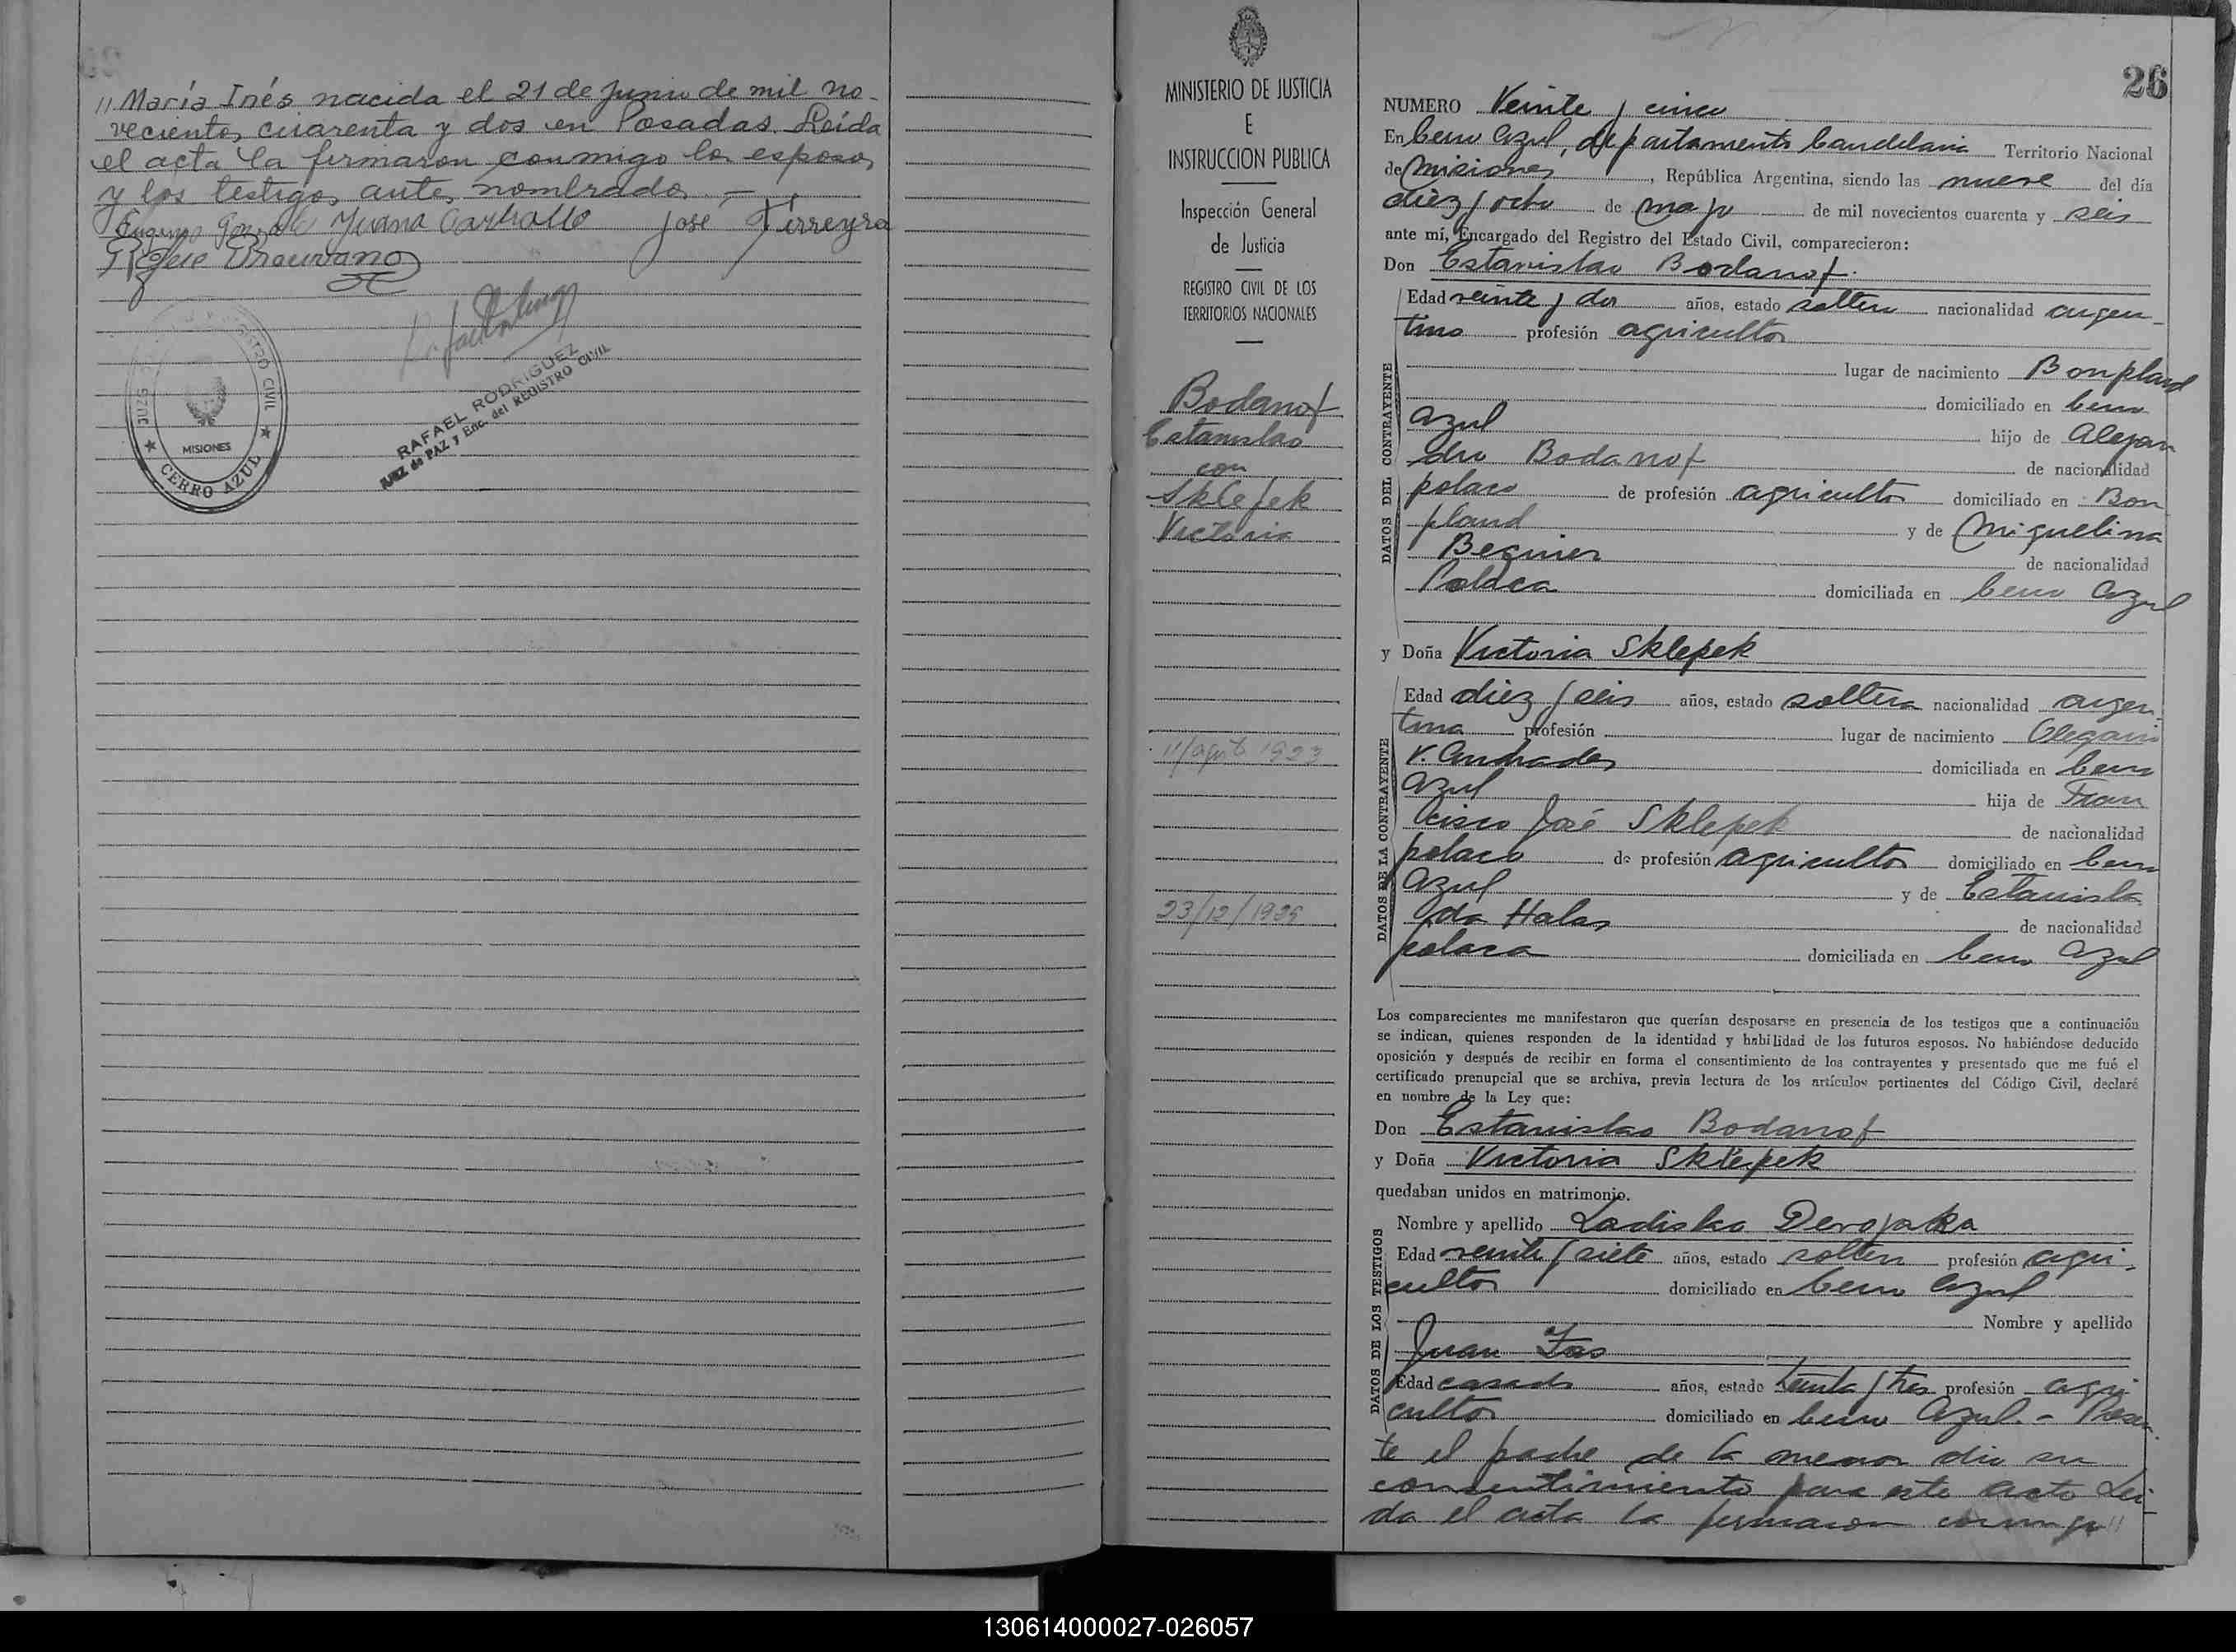 " María Inés nacida el 21 de Junio de mil no-
vecientos cuarenta y dos en Posadas. Leída
el acta la firmaron conmigo los esposos
y los testigos antes nombrados. —
Juana Carballo José Firreyra
REGISTRO CIVIL
JUZG
MISIONES
CERRO AZUL
RAFAEL RODRIGUEZ
JUEZ de PAZ y Enc. del REGISTRO CIVIL
MINISTERIO DE JUSTICIA
E
INSTRUCCION PUBLICA
Inspección General
de Justicia
REGISTRO CIVIL DE LOS
TERRITORIOS NACIONALES
Bodanof
Estanislao
con
Sklepek
Victoria
11/agto 1923
23/12/1929
26
NUMERO Veinte y cinco
En Cerro Azul, departamento Candelaria Territorio Nacional
de Misiones, República Argentina, siendo las nueve del día
diez y ocho de mayo de mil novecientos cuarenta y seis
ante mí, Encargado del Registro del Estado Civil, comparecieron:
Don Estanislao Bodanof.
DATOS DEL CONTRAYENTE
Edad veinte y dos años, estado soltero nacionalidad argen-
tino profesión agricultor
lugar de nacimiento Bonpland
domiciliado en Cerro
Azul hijo de Alejan
dro Bodanof de nacionalidad
polaco de profesión agricultor domiciliado en Bon
pland y de Miguelina
Beginer de nacionalidad
Polaca domiciliada en Cerro Azul
y Doña Victoria Sklepek
DATOS DE LA CONTRAYENTE
Edad diez y seis años, estado soltera nacionalidad argen-
tina profesión lugar de nacimiento Olegario
V. Andrades domiciliada en Cerro
Azul hija de Fran
cisco José Sklepek de nacionalidad
polaco de profesión agricultor domiciliado en Cerro
Azul y de Estanisla
da Halas de nacionalidad
polaca domiciliada en Cerro Azul
Los comparecientes me manifestaron que querían desposarse en presencia de los testigos que a continuación
se indican, quienes responden de la identidad y habilidad de los futuros esposos. No habiéndose deducido
oposición y después de recibir en forma el consentimiento de los contrayentes y presentado que me fué el
certificado prenupcial que se archiva, previa lectura de los artículos pertinentes del Código Civil, declaré
en nombre de la Ley que:
Don Estanislao Bodanof
y Doña Victoria Sklepek
quedaban unidos en matrimonio.
DATOS DE LOS TESTIGOS
Nombre y apellido Ladislao Derojaka
Edad veinte y siete años, estado soltero profesión agri-
cultor domiciliado en Cerro Azul
Nombre y apellido
Juan Zas
Edad casado años, estado treinta y tres profesión agri
cultor domiciliado en Cerro Azul. - Presen
te el padre de la menor dio su
consentimiento para este acto Leí-
da el acta la firmaron conmigo "
130614000027-026057